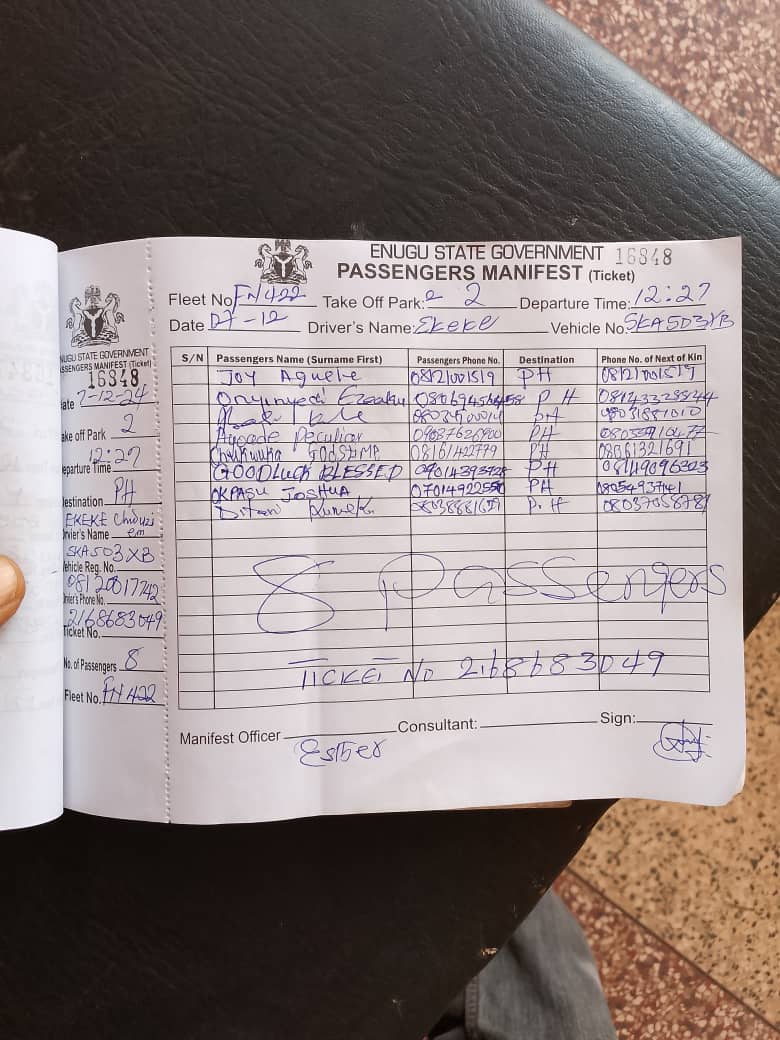 ENUGU STATE GOVERNMENT 16848
PASSENGERS MANIFEST (Ticket)
Fleet No FN422 Take Off Park: 2 Departure Time: 12:27
Date 07-12 Driver's Name: Ekeke Vehicle No. SKA503XB
S/N Passengers Name (Surname First) Passengers Phone No. Destination Phone No. of Next of Kin
Joy Agueke 08121001519 PH 08121001519
Onyinyechi PH
PH
Ayoade Peculiar PH
GODSTIME 08161422779 PH 08061321691
GOODLUCK BLESSED PH
OKPASU JOSHUA PH 08054937141
P.H
8 Passengers
TICKET NO 2168683049
Manifest Officer Esther Consultant: Sign:
ENUGU STATE GOVERNMENT
PASSENGERS MANIFEST (Ticket)
16848
Date 7-12-24
Take off Park 2
Departure Time 12:27
Destination PH
EKEKE
Driver's Name
SKA503XB
Vehicle Reg. No.
Driver's Phone No.
2168683049
Ticket No.
No. of Passengers 8
Fleet No. FN422